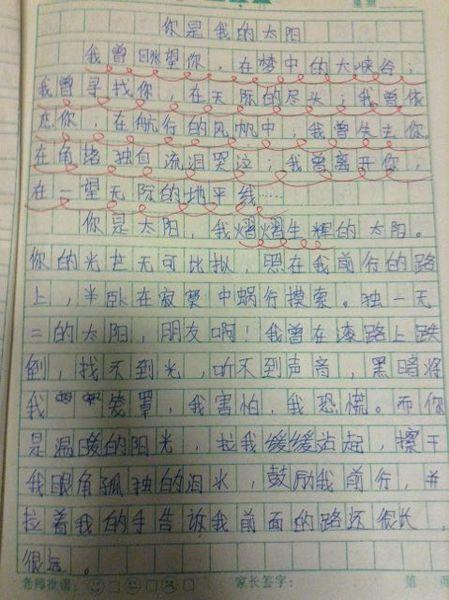 你是我的太阳
我曾眺望你，在梦中的大峡谷；
我曾寻找你，在天际的尽头；我曾依
恋你，在航行的风帆中；我曾失去你，
在角落独自流泪哭泣；我曾离开你，
在一望无际的地平线……
你是太阳，我熠熠生辉的太阳。
你的光芒无可比拟，照在我前行的路
上，半卧在寂寞中蜗行摸索。独一无
二的太阳，朋友啊！我曾在漆路上跌
倒，找不到光，听不到声音，黑暗将
我笼罩，我害怕，我恐慌。而你
是温暖的阳光，拉我缓缓站起，擦干
我眼角孤独的泪水，鼓励我前行，并
拉着我的手告诉我前面的路还很长，
很远。
老师批语：
家长签字：
第 页